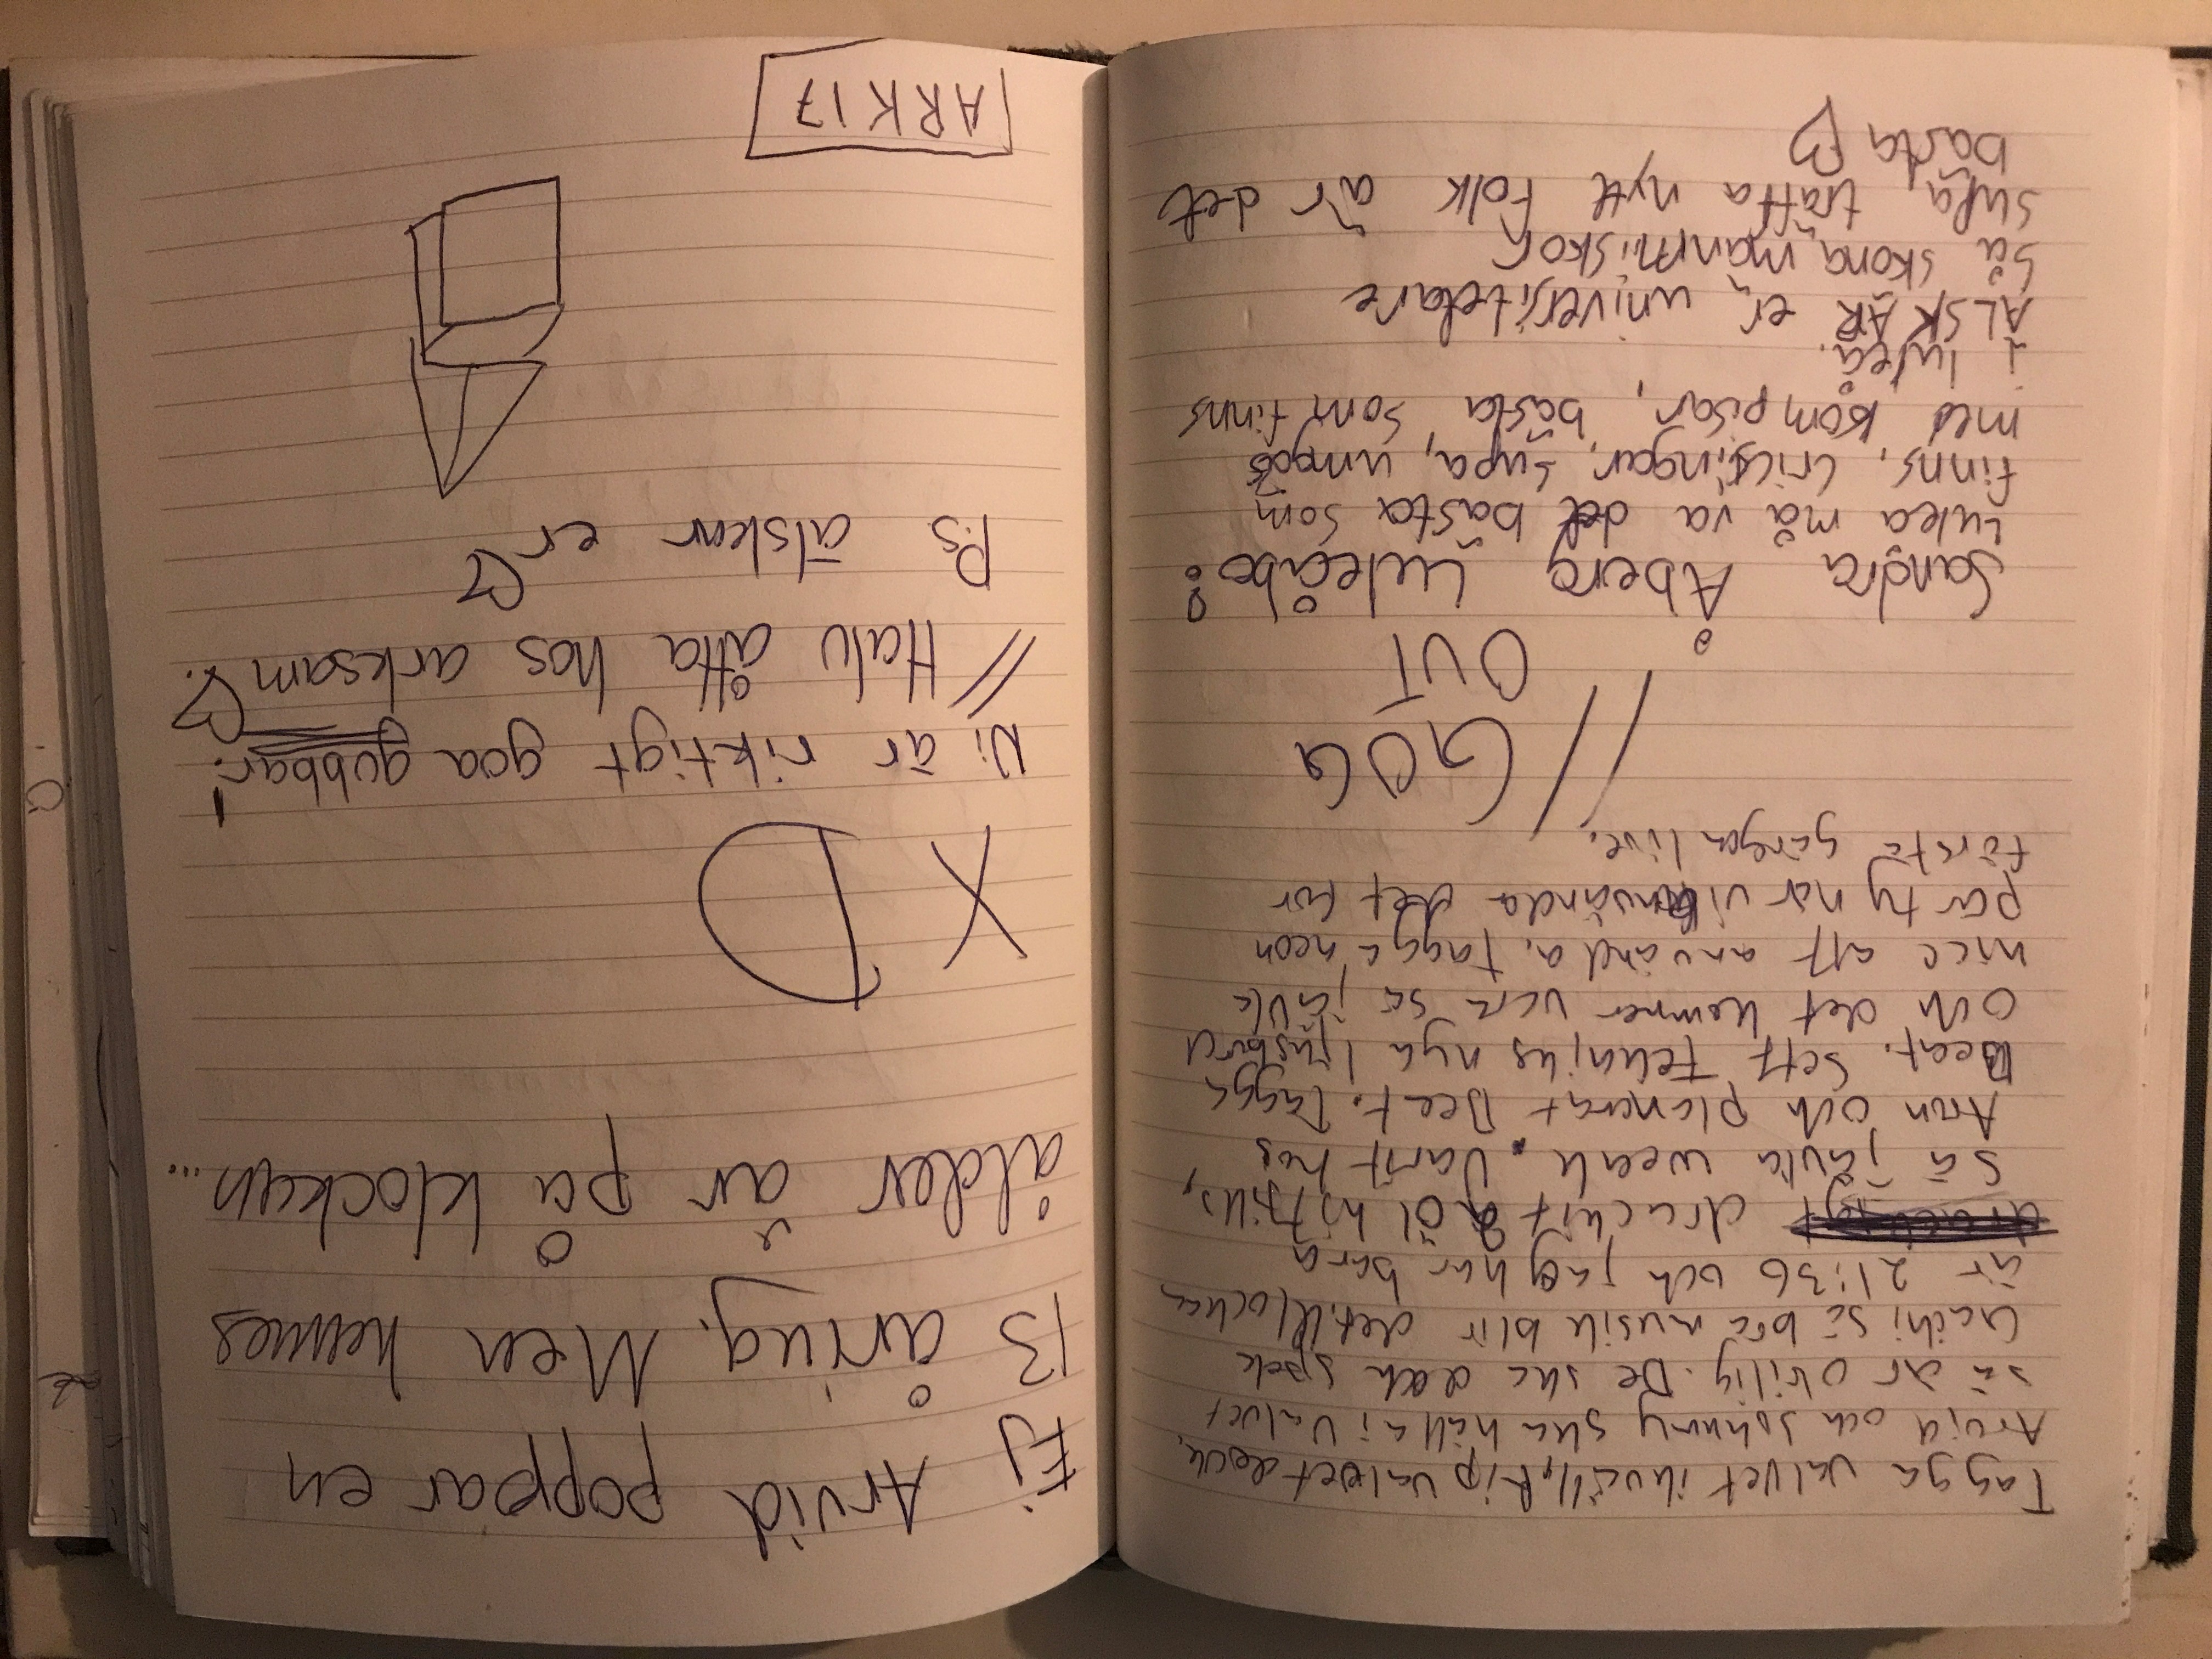 Tagga valvet ikväll, Rip valvet dock.
Arvid och Johnny ska hålla i valvet
så är orilig. De ska dock spela
Gäthi så bra musik blir det. Klockan
är 21:36 och jag har bara
druckit 2 öl hittills,
så jävla weak. Varit hos
Arm och planerat Deet. Tagga
Deet. Sett Teknikus nya ljusbord
och det kommer vara så jävla
nice att använda. Tagga neon
party när vi använda det för
första gången live.
// GOG
OUT
Sandra Åberg Luleåbo:
Lulea må va det bästa som
finns, crissingar, supa, umgås
med kompisar, bästa som finns
i luleå.
ÄLSKAR er, universitetare
Så sköna mänmiskor
supa, träffa nytt folk är det
bästa ♡
Ej Arvid poppar en
13 åring. Men hennes
ålder är på klockan...
XD
Ni är riktigt goa gubbar!
// Halv åtta hos arksam ♡.
P.s älskar er ♡
ARK 17